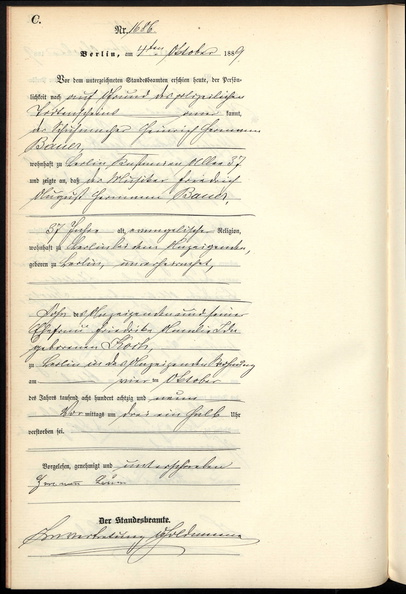 C.
Nr. 1686.
Berlin, am 4ten Oktober 1889.
Vor dem unterzeichneten Standesbeamten erschien heute, der Persön-
lichkeit nach auf Grund des polizeilichen
kannt,
der Schuhmacher Heinrich Hermann
Bauer,
wohnhaft zu Berlin, Allee 37,
und zeigte an, daß der Friedrich
August Hermann Bauer,
37 Jahre alt, evangelischer Religion,
wohnhaft zu Berlin bei dem Anzeigenden,
geboren zu Berlin, unverheirathet,
Sohn des Anzeigenden und seiner
Ehefrau Friederike
geborenen Koch,
zu Berlin in des Anzeigenden Wohnung
am vier ten Oktober
des Jahres tausend acht hundert achtzig und neun
Vor mittags um drei ein halb Uhr
verstorben sei.
Vorgelesen, genehmigt und unterschrieben
Hermann
Der Standesbeamte.
In Vertretung